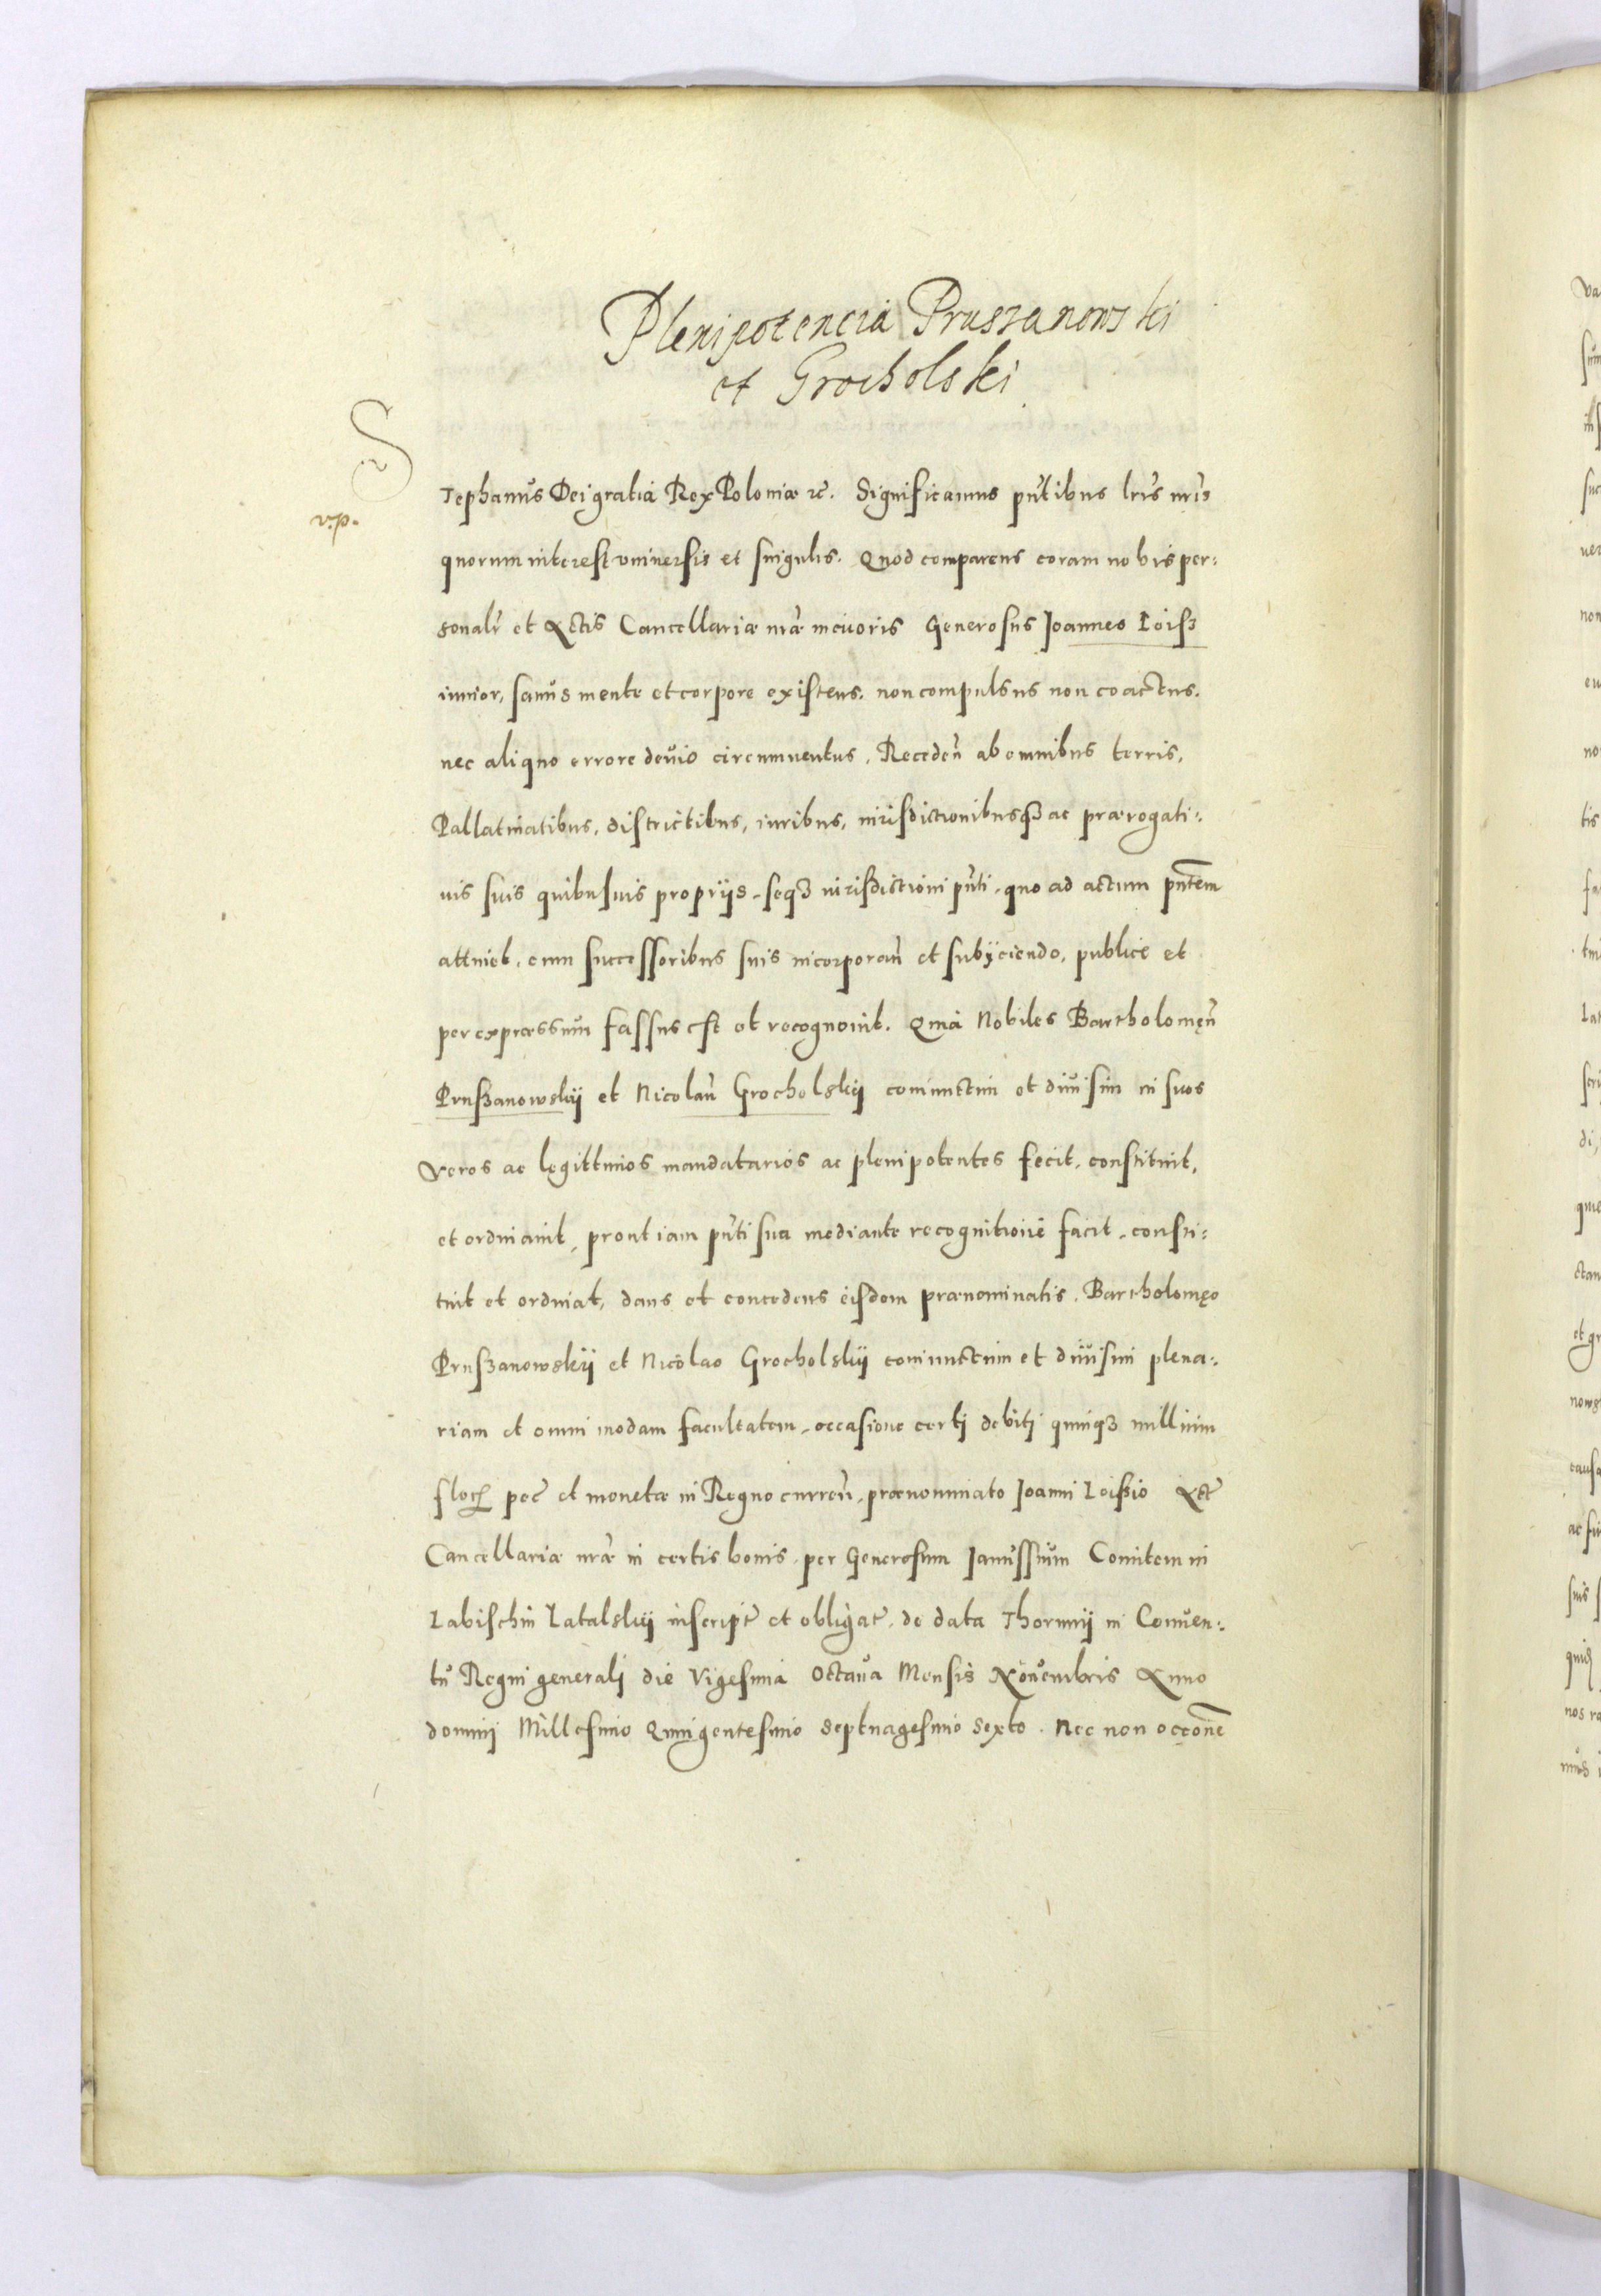 Plenipotencia Prussanowski
et Grocholski
Stephanus Dei gratia Rex Poloniæ etc. Significamus pn̄tibus lr̄is nr̄is
quorum interest vniuersis et singulis. Quod comparens coram nobis per:
sonalr̄ et Actis Cancellariæ nr̄æ meuoris Generosus Joannes Loisz
iunior, sanus mente et corpore existens. non compulsus non coactus.
nec aliquo errore deuio circumuentus, Receden̄ ab omnibus terris,
Pallatinatibus, districtibus, iuribus, iurisdictionibusqȝ ac prærogati:
uis suis quibusuis proprijs, seqȝ iurisdictioni pn̄ti, quo ad actum pn̄tem
attinet, cum successoribus suis incorporan̄ et subijciendo, publice et
per expræssum fassus est et recognouit. Quia Nobiles Bartholomęū
Pruszanowskij et Nicolaū Grocholskij coniunctim et diuisim in suos
veros ac legittimos mandatarios ac plenipotentes fecit, constituit,
et ordinauit, prout iam pn̄ti sua mediante recognitione facit, consti:
tuit et ordinat, dans et concedens eisdem prænominatis. Bartholomęo
Pruszanowskij et Nicolao Grocholskij coniunctim et diuisim plena:
riam et omni modam facultatem, occasione certj debitj quinqȝ millium
flor̄ pec̄ et monetæ in Regno curren̄, prænominato Joanni Loiszio Act̄
Cancellariæ nr̄æ in certis bonis, per Generosum Janussium Comitem in
Labischin Latalskij inscript̄ et obligat̄, de data Thorunij in Conuen:
tu Regni generalj die Vigesima Octaua Mensis Nouembris Anno
dominj Millesimo Quingentesimo Septuagesimo Sexto. Nec non occōne